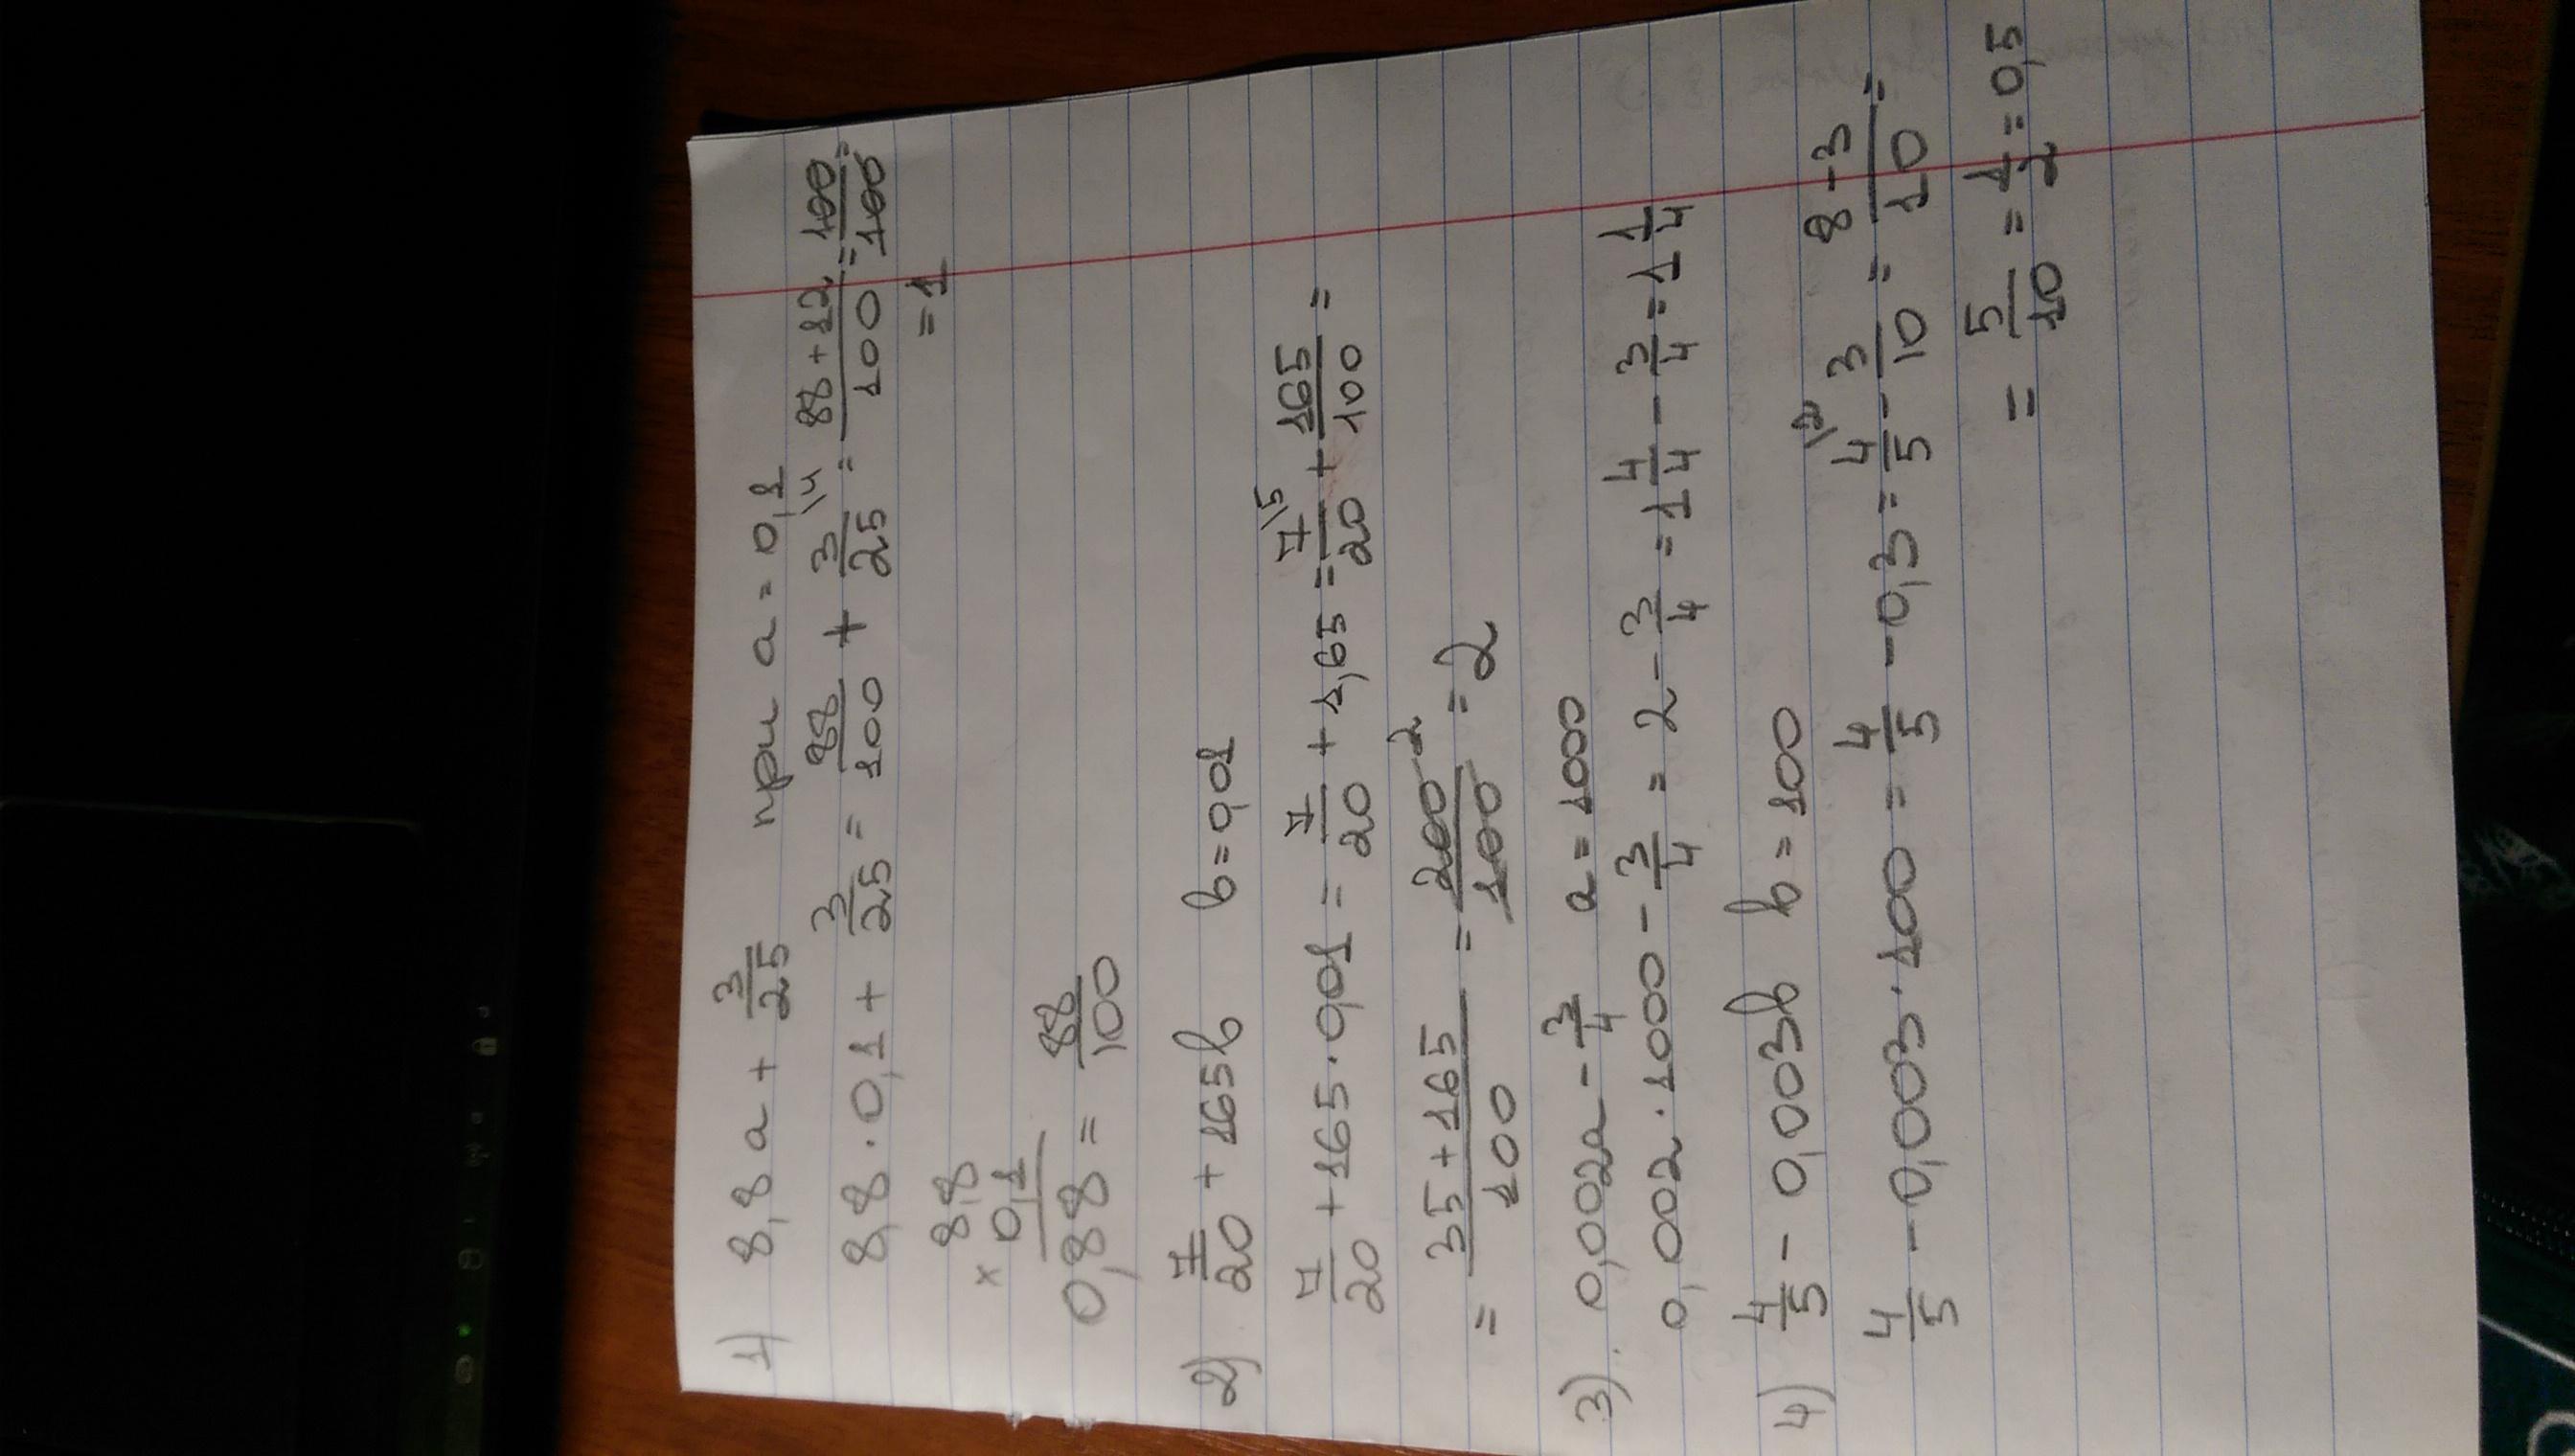 1) 8,8a + 3/25 при a = 0,1
8,8 · 0,1 + 3/25 = 88/100 + 3/25 \4 = 88+12/100 = 100/100 =
= 1
8,8
× 0,1
0,88 = 88/100
2) 7/20 + 165b b = 0,01
7/20 + 165 · 0,01 = 7/20 + 1,65 = 7/20 \5 + 165/100 =
= 35+165/100 = 200/100 2 = 2
3) 0,002a - 3/4 a = 1000
0,002 · 1000 - 3/4 = 2 - 3/4 = 1 4/4 - 3/4 = 1 1/4
4) 4/5 - 0,003b b = 100
4/5 - 0,003 · 100 = 4/5 - 0,3 = 4/5 \2 - 3/10 = 8-3/10 =
= 5/10 = 1/2 = 0,5